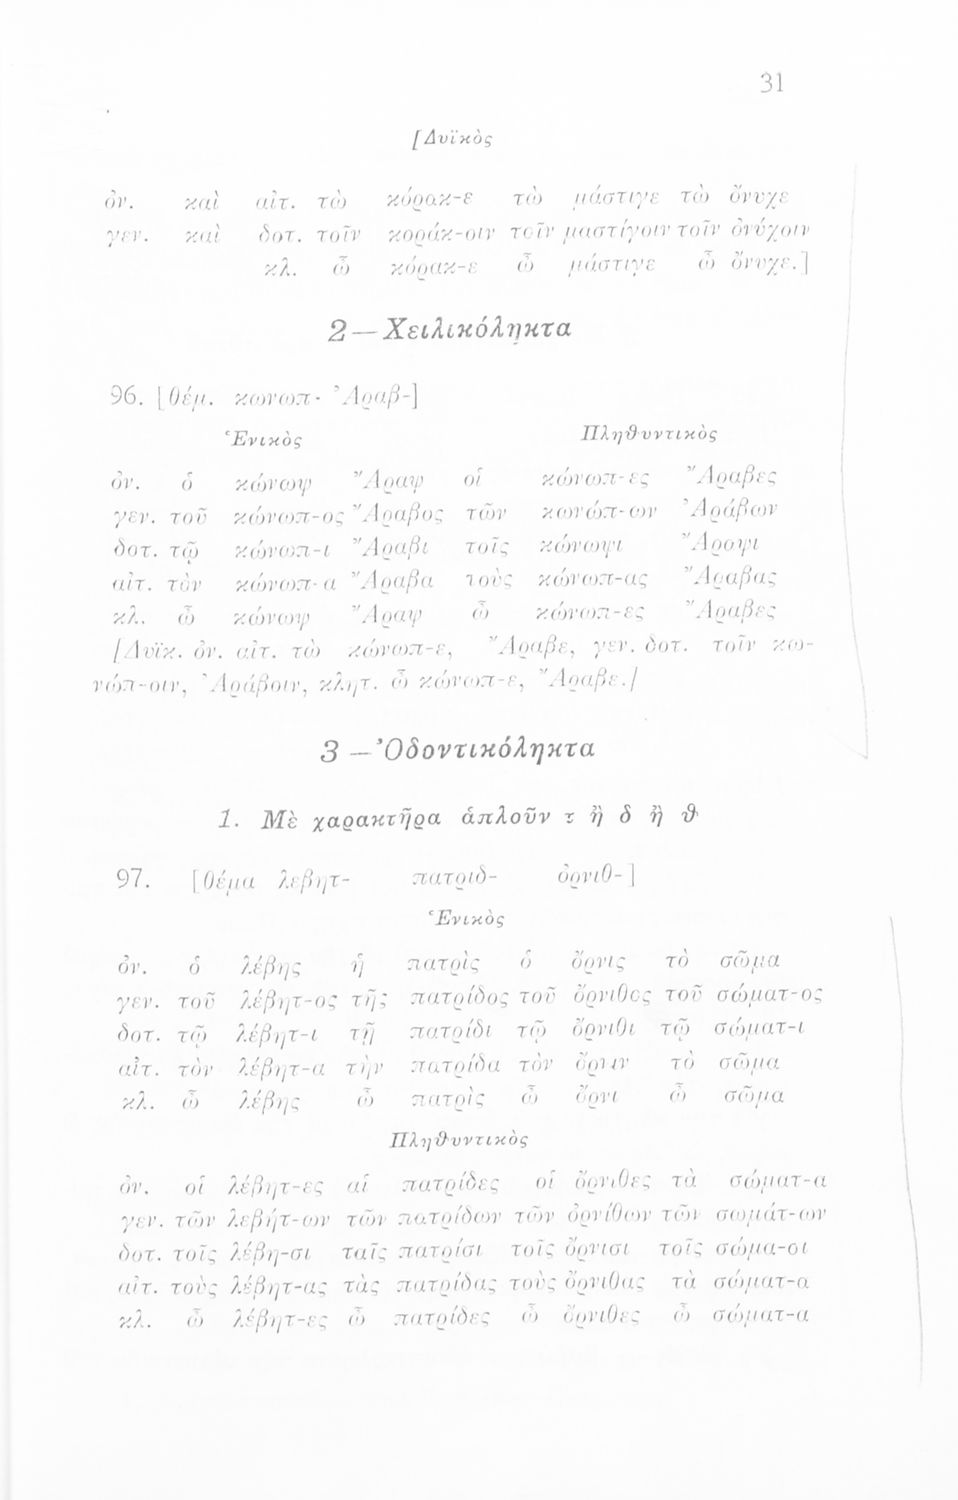 31
[Δυϊκὸς
ὀν. καὶ αἰτ. τὼ κόρακ-ε τὼ μάστιγε τὼ ὄνυχε
γεν. καὶ δοτ. τοῖν κοράκ-οιν τοῖν μαστίγοιν τοῖν ὀνύχοιν
κλ. ὦ κόρακ-ε ὦ μάστιγε ὦ ὄνυχε.]
2 — Χειλικόληκτα
96. [θέμ. κωνωπ- Ἀραβ-]
Ἑνικὸς Πληθυντικὸς
ὀν. ὁ κώνωψ Ἄραψ οἱ κώνωπ-ες Ἄραβες
γεν. τοῦ κώνωπ-ος Ἄραβος τῶν κωνώπ-ων Ἀράβων
δοτ. τῷ κώνωπ-ι Ἄραβι τοῖς κώνωψι Ἄραψι
αἰτ. τὸν κώνωπ-α Ἄραβα τοὺς κώνωπ-ας Ἄραβας
κλ. ὦ κώνωψ Ἄραψ ὦ κώνωπ-ες Ἄραβες
[Δυϊκ. ὀν. αἰτ. τὼ κώνωπ-ε, Ἄραβε, γεν. δοτ. τοῖν κω-
νώπ-οιν, Ἀράβοιν, κλητ. ὦ κώνωπ-ε, Ἄραβε.]
3 — Ὀδοντικόληκτα
1. Μὲ χαρακτῆρα ἁπλοῦν τ ἢ δ ἢ θ
97. [θέμα λεβητ- πατριδ- ὀρνιθ-]
Ἑνικὸς
ὀν. ὁ λέβης ἡ πατρὶς ὁ ὄρνις τὸ σῶμα
γεν. τοῦ λέβητ-ος τῆς πατρίδος τοῦ ὄρνιθος τοῦ σώματ-ος
δοτ. τῷ λέβητ-ι τῇ πατρίδι τῷ ὄρνιθι τῷ σώματ-ι
αἰτ. τὸν λέβητ-α τὴν πατρίδα τὸν ὄρνιν τὸ σῶμα
κλ. ὦ λέβης ὦ πατρὶς ὦ ὄρνι ὦ σῶμα
Πληθυντικὸς
ὀν. οἱ λέβητ-ες αἱ πατρίδες οἱ ὄρνιθες τὰ σώματ-α
γεν. τῶν λεβήτ-ων τῶν πατρίδων τῶν ὀρνίθων τῶν σωμάτ-ων
δοτ. τοῖς λέβη-σι ταῖς πατρίσι τοῖς ὄρνισι τοῖς σώμα-σι
αἰτ. τοὺς λέβητ-ας τὰς πατρίδας τοὺς ὄρνιθας τὰ σώματ-α
κλ. ὦ λέβητ-ες ὦ πατρίδες ὦ ὄρνιθες ὦ σώματ-α